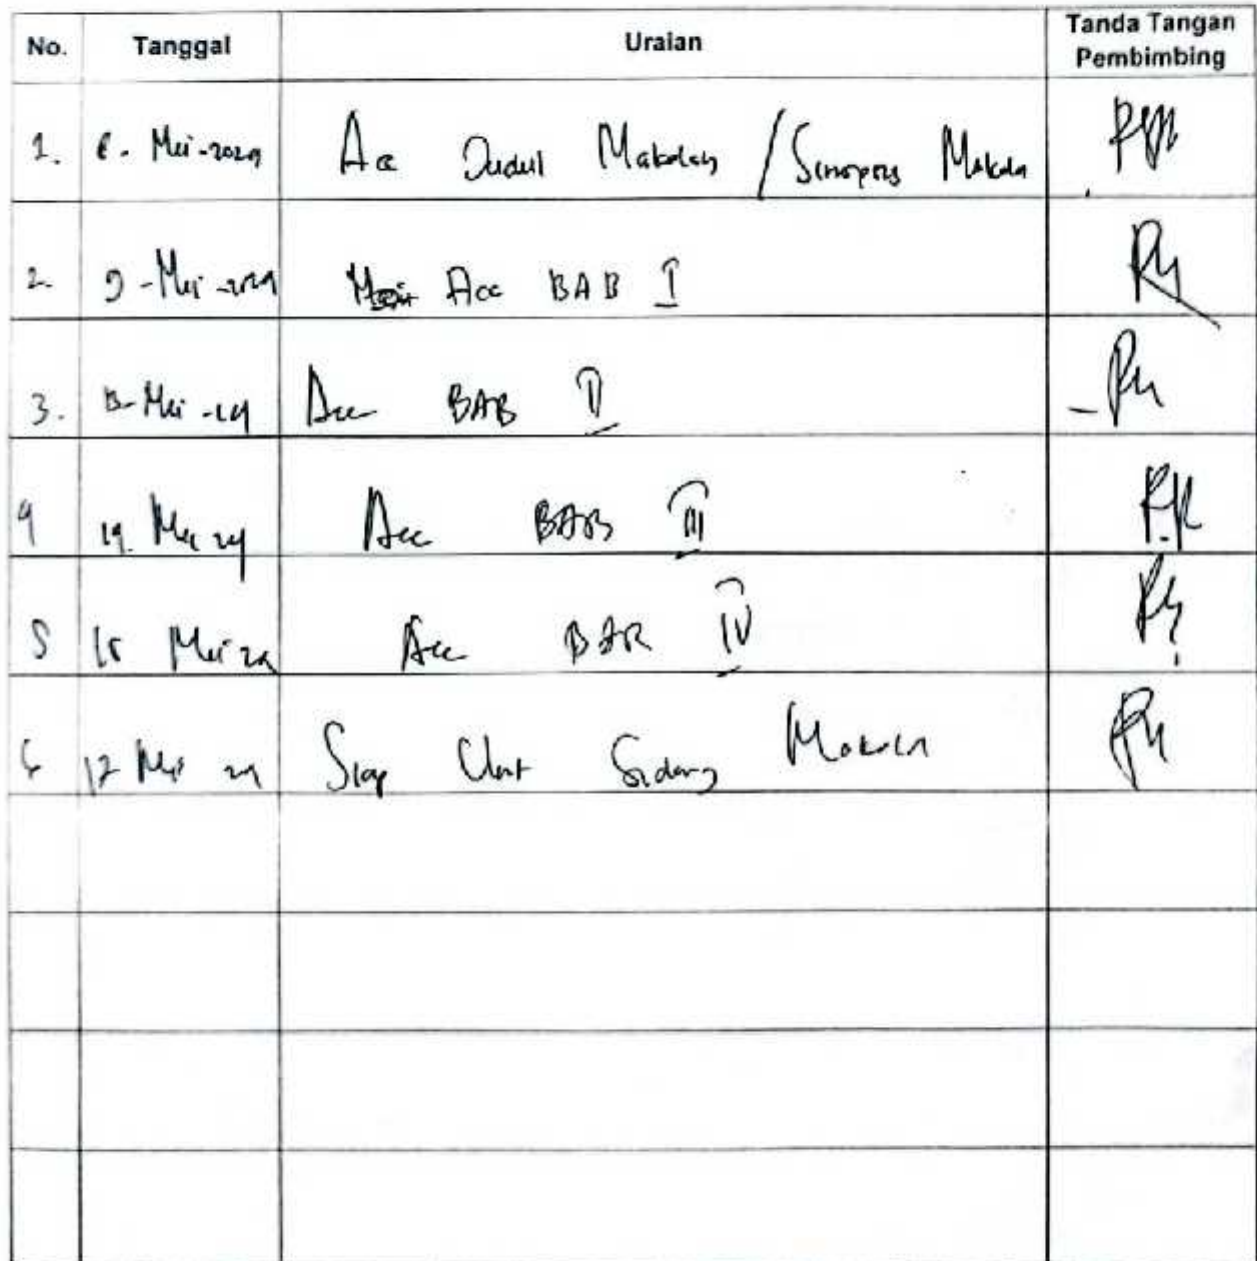 No. Tanggal Uraian Tanda Tangan Pembimbing
1. 6 - Mei - 2024 Acc Judul Makalah / Sinopsis Makala
2. 9 - Mei - 2024 Acc BAB I
3. 13 - Mei - 24 Acc BAB II
4 14 Mei 24 Acc BAB III
5 15 Mei 24 Acc BAB IV
6 17 Mei 24 Siap Sidang Makala